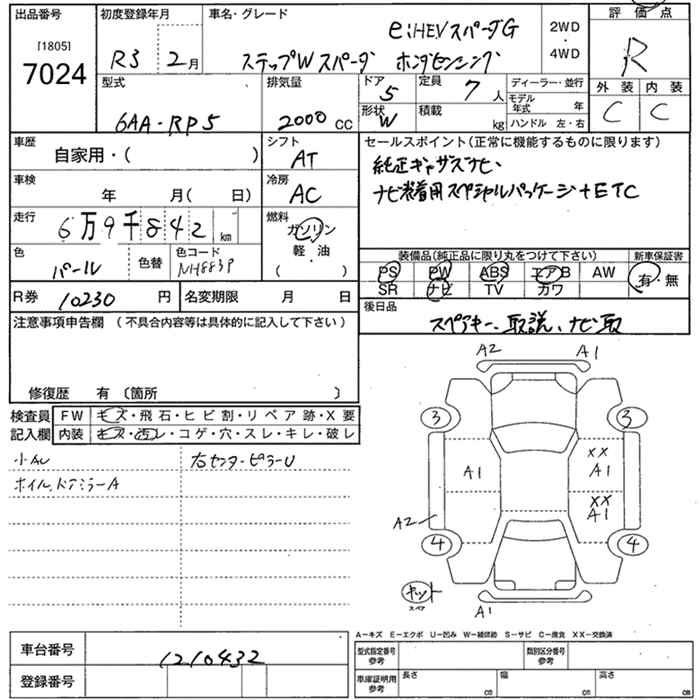 出品番号
[1805]
7024
初度登録年月
R3 2月
車名・グレード
e:HEVスパーダG
ステップW スパーダ ホンダセンシング
2WD
・
4WD
評価点
R
外装 内装
C C
型式
6AA-RP5
排気量
2000 cc
ドア
5
形状
W
定員
7人
積載
kg
ディーラー・並行
モデル年式 年
ハンドル 左・右
車歴
自家用・( )
シフト
AT
車検
年 月( 日)
冷房
AC
走行
6万9千842 km
燃料
ガソリン
軽・油
( )
色
パール
色替
色コード
NH883P
R券 10230 円
名変期限 月 日
セールスポイント(正常に機能するものに限ります)
純正ギャザズナビ
ナビ装着用スペシャルパッケージ+ETC
装備品(純正品に限り丸をつけて下さい)
PS PW ABS エアB AW
SR ナビ TV カワ
新車保証書
有・無
後日品
スペアキー、取説、ナビ取
注意事項申告欄 (不具合内容等は具体的に記入して下さい)
修復歴 有〔箇所 〕
検査員記入欄
FW キズ・飛石・ヒビ割・リペア跡・X要
内装 キズ・凹レ・コゲ・穴・スレ・キレ・破レ
小AU
右センターピラーU
ホイル、ドアミラーA
A2 A1
3 3
XX
A1 A1
XX
A1
A2
4 4
スペア
A1
A-キズ E-エクボ U-凹み W-補修跡 S-サビ C-腐食 XX-交換済
車台番号 1210432
登録番号
型式指定番号
参考
類別区分番号
参考
車庫証明用
参考
長さ cm 幅 cm 高さ cm